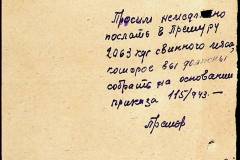 Просим немедленно
послать в Прешуру
2063 кгр свинного мяса,
которое вы должны
собрать на основании
приказа 115/943.—